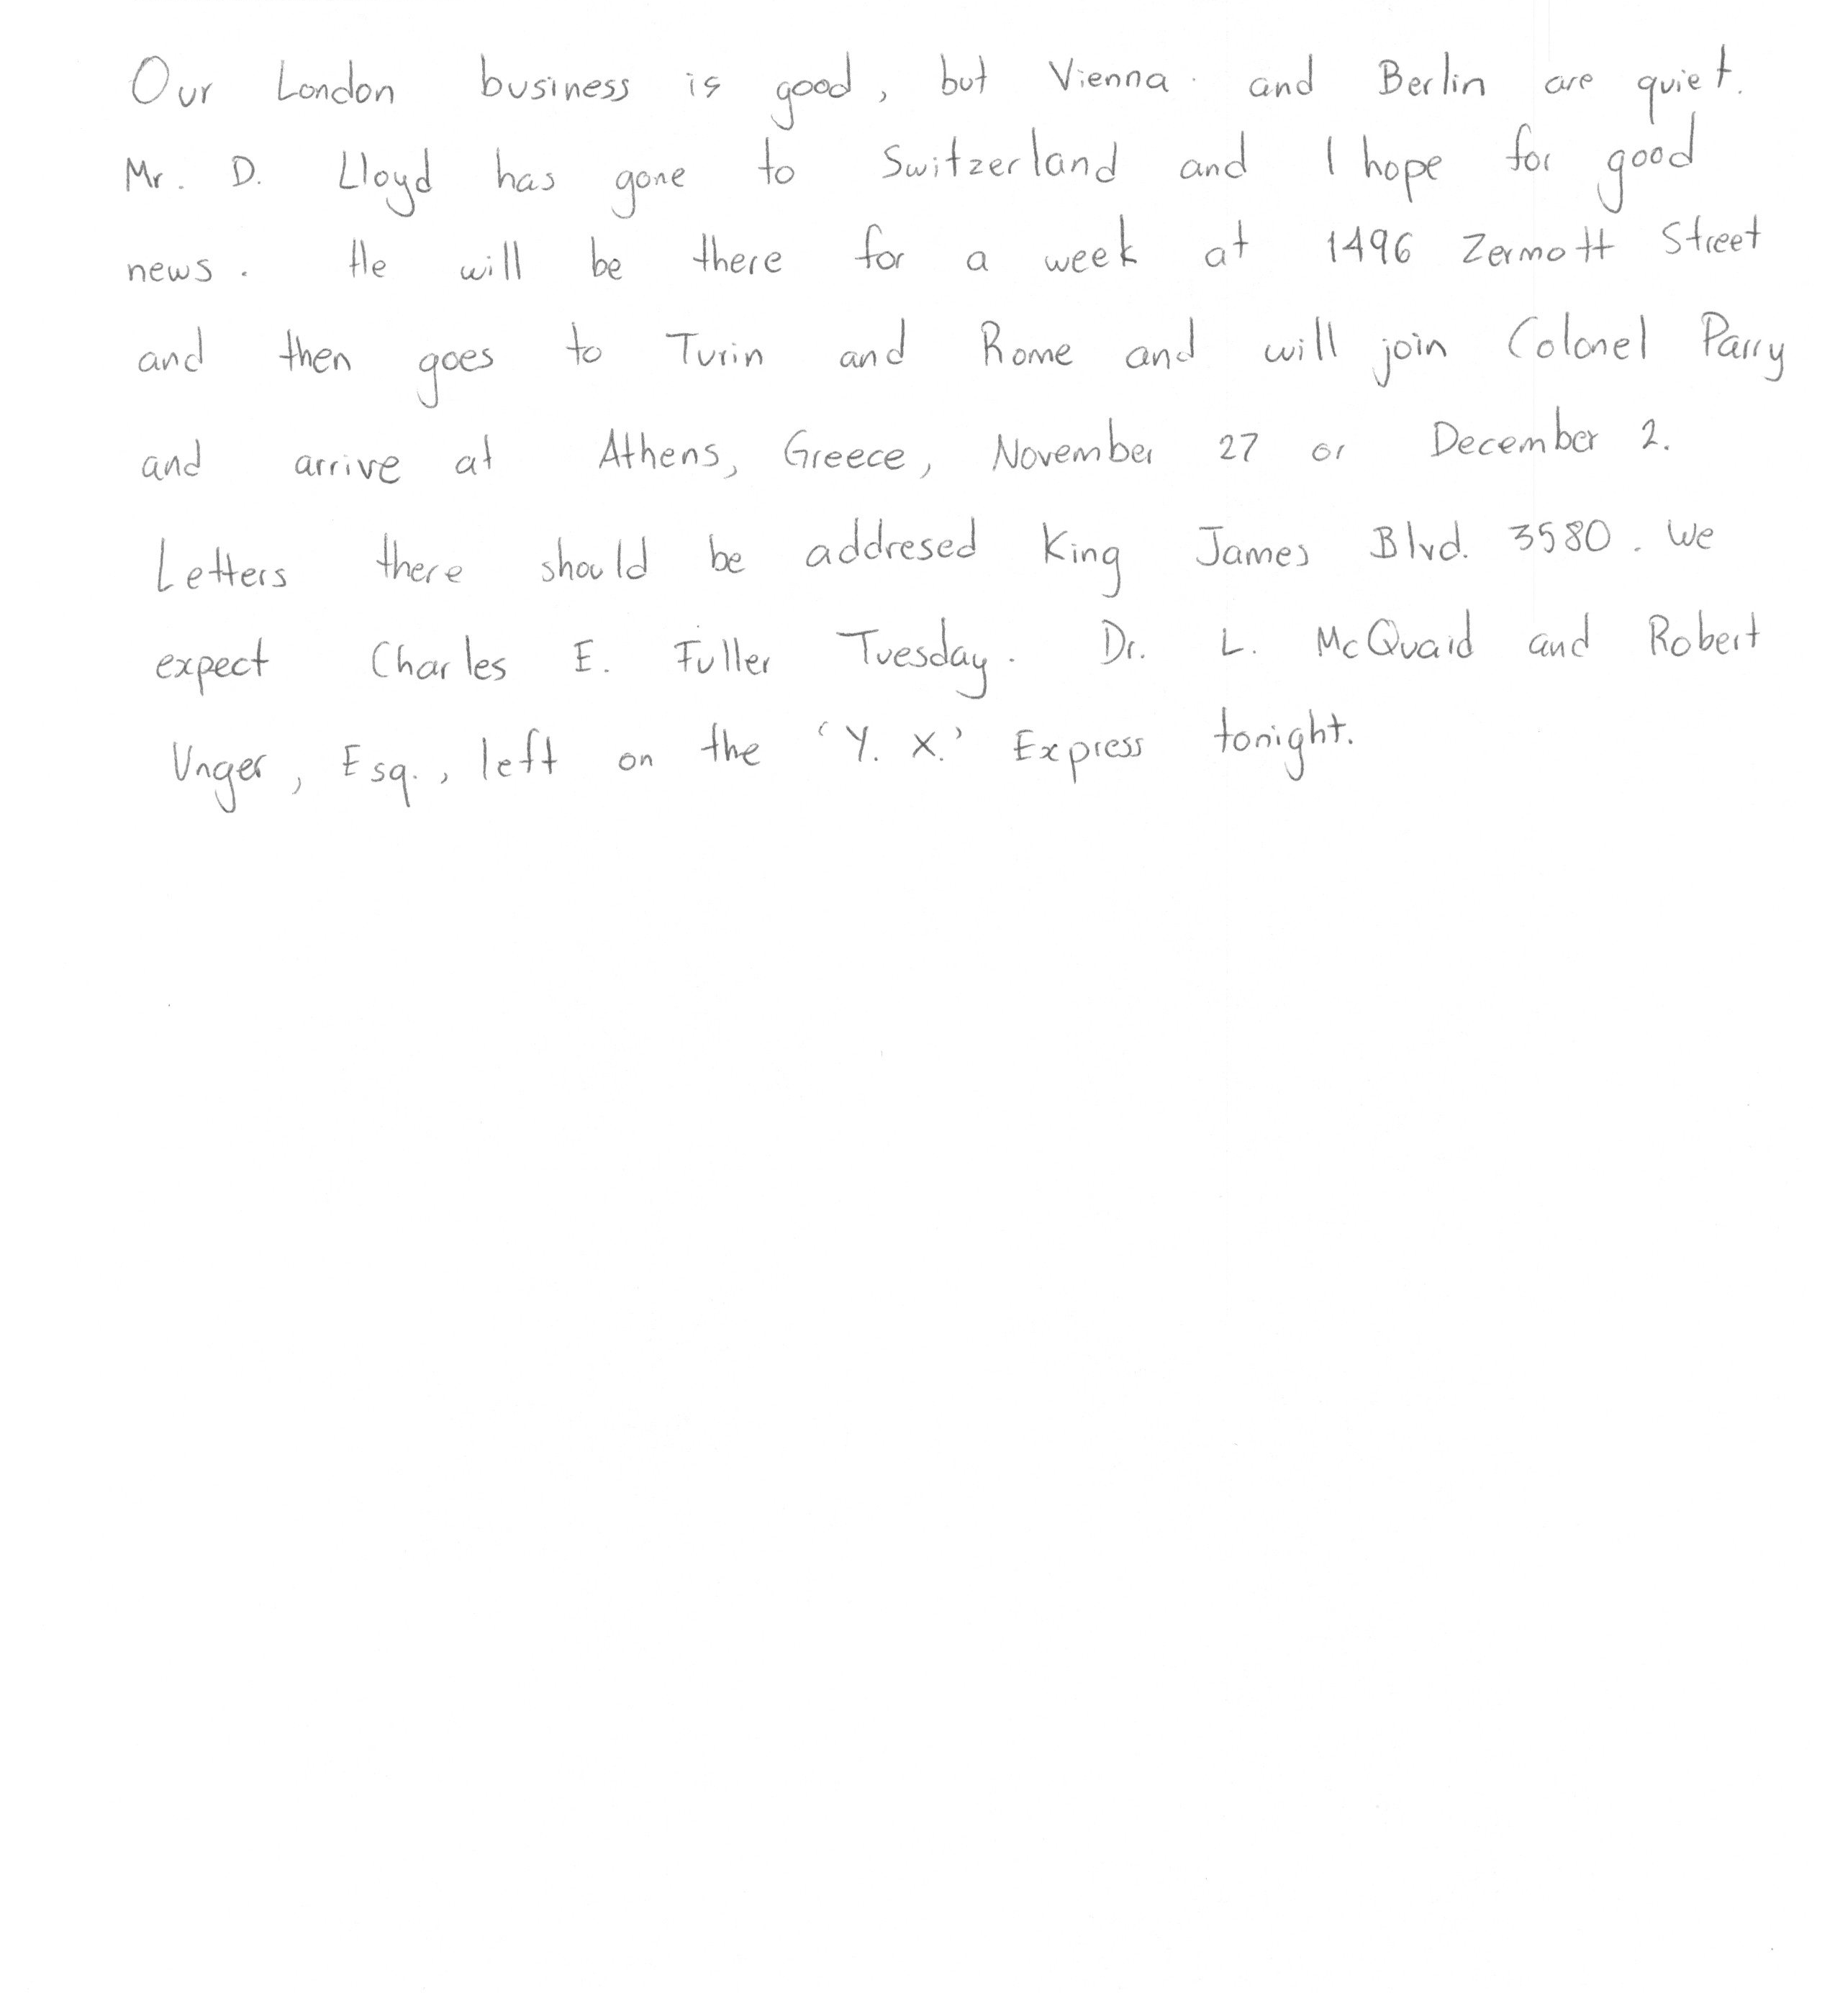 Our London business is good, but Vienna. and Berlin are quiet.
Mr. D. Lloyd has gone to Switzerland and I hope for good
news. He will be there for a week at 1496 Zermott Street
and then goes to Turin and Rome and will join Colonel Parry
and arrive at Athens, Greece, November 27 or December 2.
Letters there should be addresed King James Blvd. 3580. We
expect Charles E. Fuller Tuesday. Dr. L. McQuaid and Robert
Unger, Esq., left on the 'Y. X.' Express tonight.